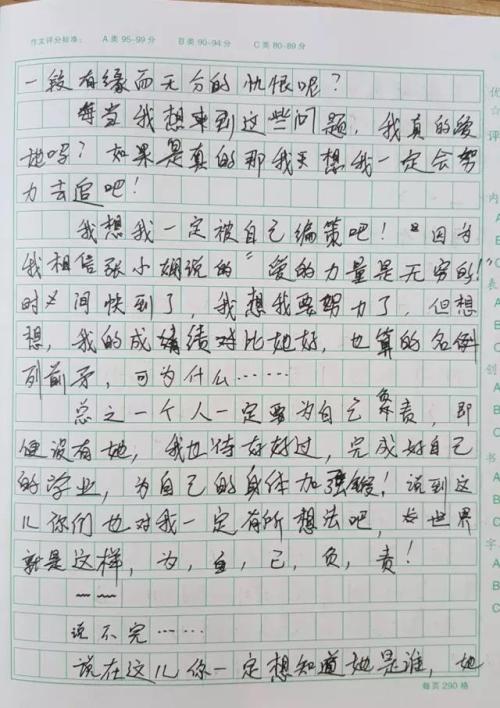 作文评分标准： A类 95-99分 B类 90-94分 C类 80-89分
一段有缘而无分的仇恨呢？
每当我想来到这些问题，我真的爱
她吗？如果是真的那我天想我一定会努
力去追吧！
我想我一定被自己编策吧！“因为
我相信张小娴说的“爱的力量是无穷的！”
时间快到了，我想我要努力了，但想
想，我的成绩对比她好，也算的名例
列前矛，可为什么……
总之一个人一定要为自己负责，即
便没有她，我也待好好过，完成好自己
的学业，为自己的身体加强锻！说到这
儿你们也对我一定有所想法吧，世界
就是这样，为，自，己，负，责！
~~
说不完……
说在这儿你一定想知道她是谁，她
每页290格
优
☆
评
内
A
B
C
表
A
B
C
创
A
B
C
书
A
B
C
字
A
B
C